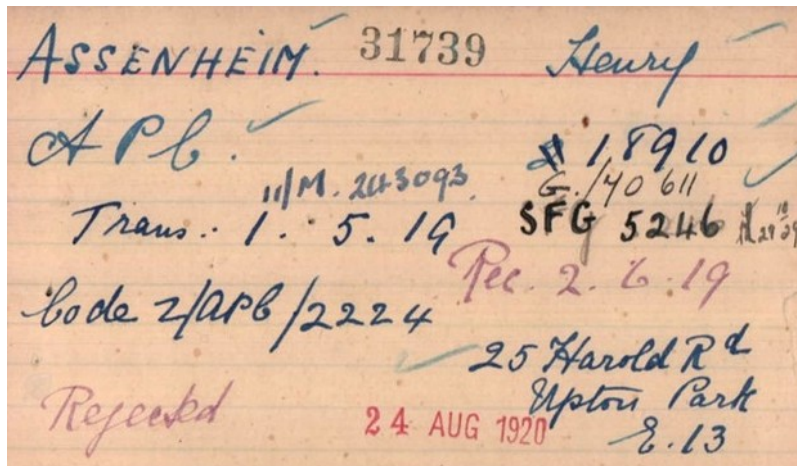 ASSENHEIM. 31739 Henry
A P C. 18910
11/M. 243093. G./40611
Trans.: 1. 5. 19 SFG 5246
Rec. 2. 6. 19
Code 2/APC/2224
25 Harold Rd
Upton Park
E.13
Rejected 24 AUG 1920